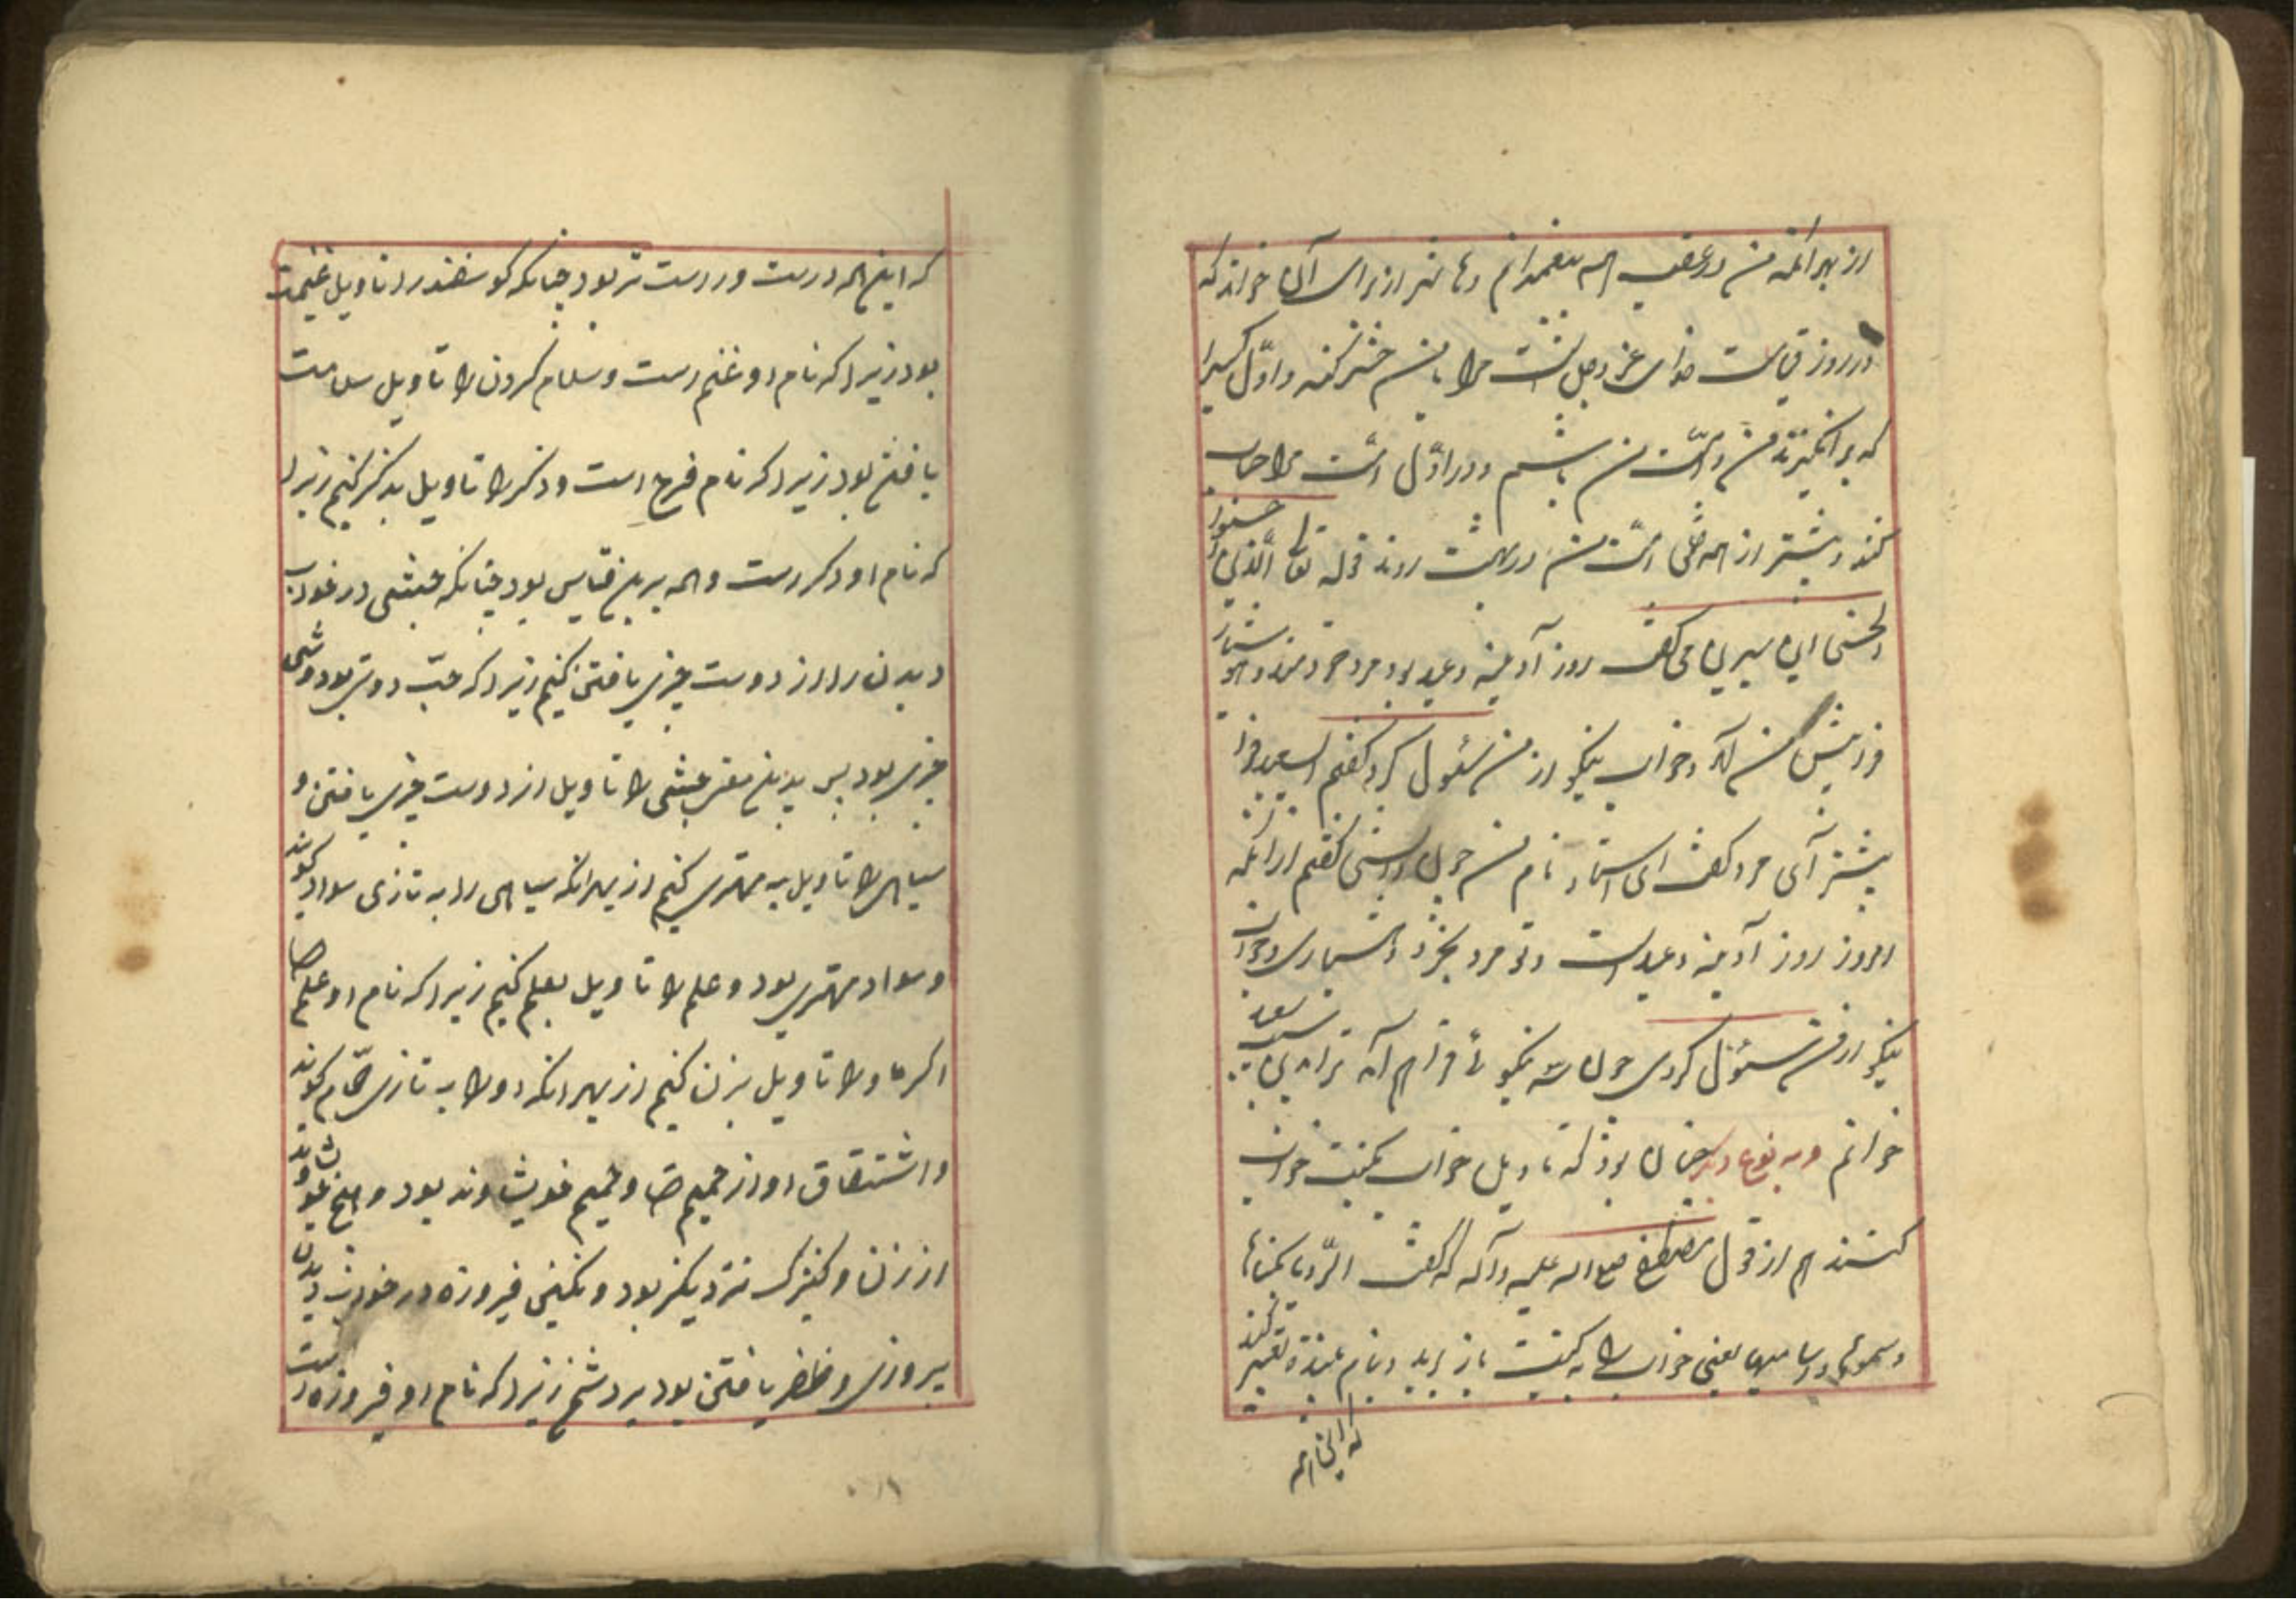 از بهر آنکه من در عقب همه پیغمبرانم و حاشر از برای آن خواند که
در روز قیامت خدای عز و جل نخست مرا با من حشر کند و اوّل کسیرا
که برانگیزند من و امّت من باشم و در اوّل امّت مرا حساب
کند و پیشتر از همه خلق امّت من در بهشت روند قوله تعا الّذین احسنوا
الحسنی ابن سیرین می گفت روز آدینه و عید بود مرد خردمند و هوشیار
فرا پیش من آمد و خواب نیکو از من سئول کرد گفتم اسعید فرا
پیشتر آی مرد گفت ای استاد نام من چون دانستی گفتم از آنکه
امروز روز آدینه و عید است و تو مرد بخرد و هشیاری و خواب
نیکو از من سئول کردی چون سه نیکوئی فراهم آمد ترا بدین سعید
خوانم و به نوع دیگر چنان بود که تاویل خواب بکنیت خواب
کنند هم از قول مصطفی صلی اله علیه و آله که گفت الرّویا بکناها
و سموها باسامیها یعنی خواب را به کنیت باز برید و بنام بیننده تعبیر کنید
که این همه
که این همه درست و درست تر بود چنانکه کوسفند را تاویل غنیمت
بود زیرا که نام او غنم است و سلام کردن را تاویل سلامت
یافتن بود زیرا که نام فرح است و ذکر را تاویل بذکر کنیم زیرا
که نام او ذکر است و همه برین قیاس بود چنانکه حبشی در خواب
دیدن را از دوست چیزی یافتن کنیم زیرا که حبّ دوستی بود و شی
چیزی بود پس بدین معنی حبشی را تاویل از دوست چیزی یافتن و
سیاهی را تاویل به مهتری کنیم از بهر آنکه سیاهی را به تازی سواد کویند
و سواد مهتری بود و علم را تاویل بعلم کنیم زیرا که نام او علم
اکرماو را تاویل بزن کنیم از بهر آنکه او را به تازی حمّام کویند
و اشتقاق او از حمیم و حمیم خویشاوند بود و هیچ خویشاوند
از زن و کنیزک نزدیکتر بود و نکین فیروزه در خواب دیدن
پیروزی و ظفر یافتن بود بر دشمن زیرا که نام او فیروزه است